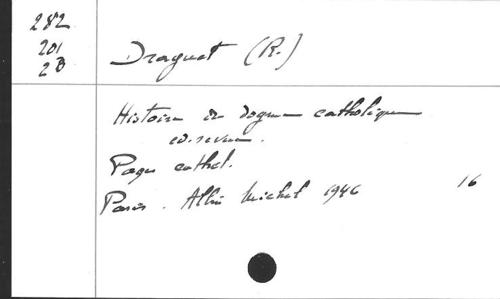 282
201
2B
Draguet (R.)
Histoire du dogme catholique
éd. revue.
Pages cathol.
Paris. Albin Michel 1946 16